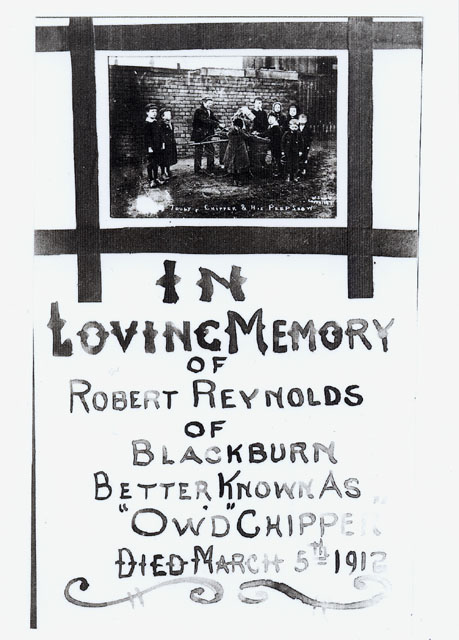 Truly, Chipper & His Peep Show
IN
LOVING MEMORY
OF
ROBERT REYNOLDS
OF
BLACKBURN
BETTER KNOWN AS
"OW'D" CHIPPER
DIED MARCH 5TH 1912